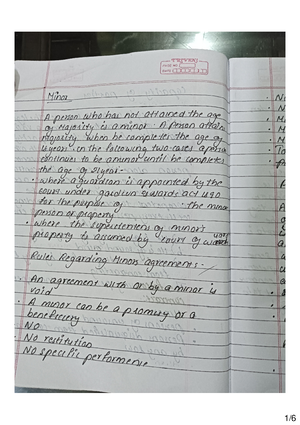 Minor
A person who has not attained the age
of Majority is a minor. A person attains
majority when he completes the age of
18 years. in the following two cases a person
continues to be a minor until he completes
the age of 21 year.
. where a guardian is appointed by the
court under
for the purpose of the minor
person or property
. where the of minor's
property is assumed by court of
Rules Regarding Minor agreements.
. An agreement with or by a minor is
void
. A minor can be a promisey or a
beneficiery
NO
No restitution
No specific performence
1/6